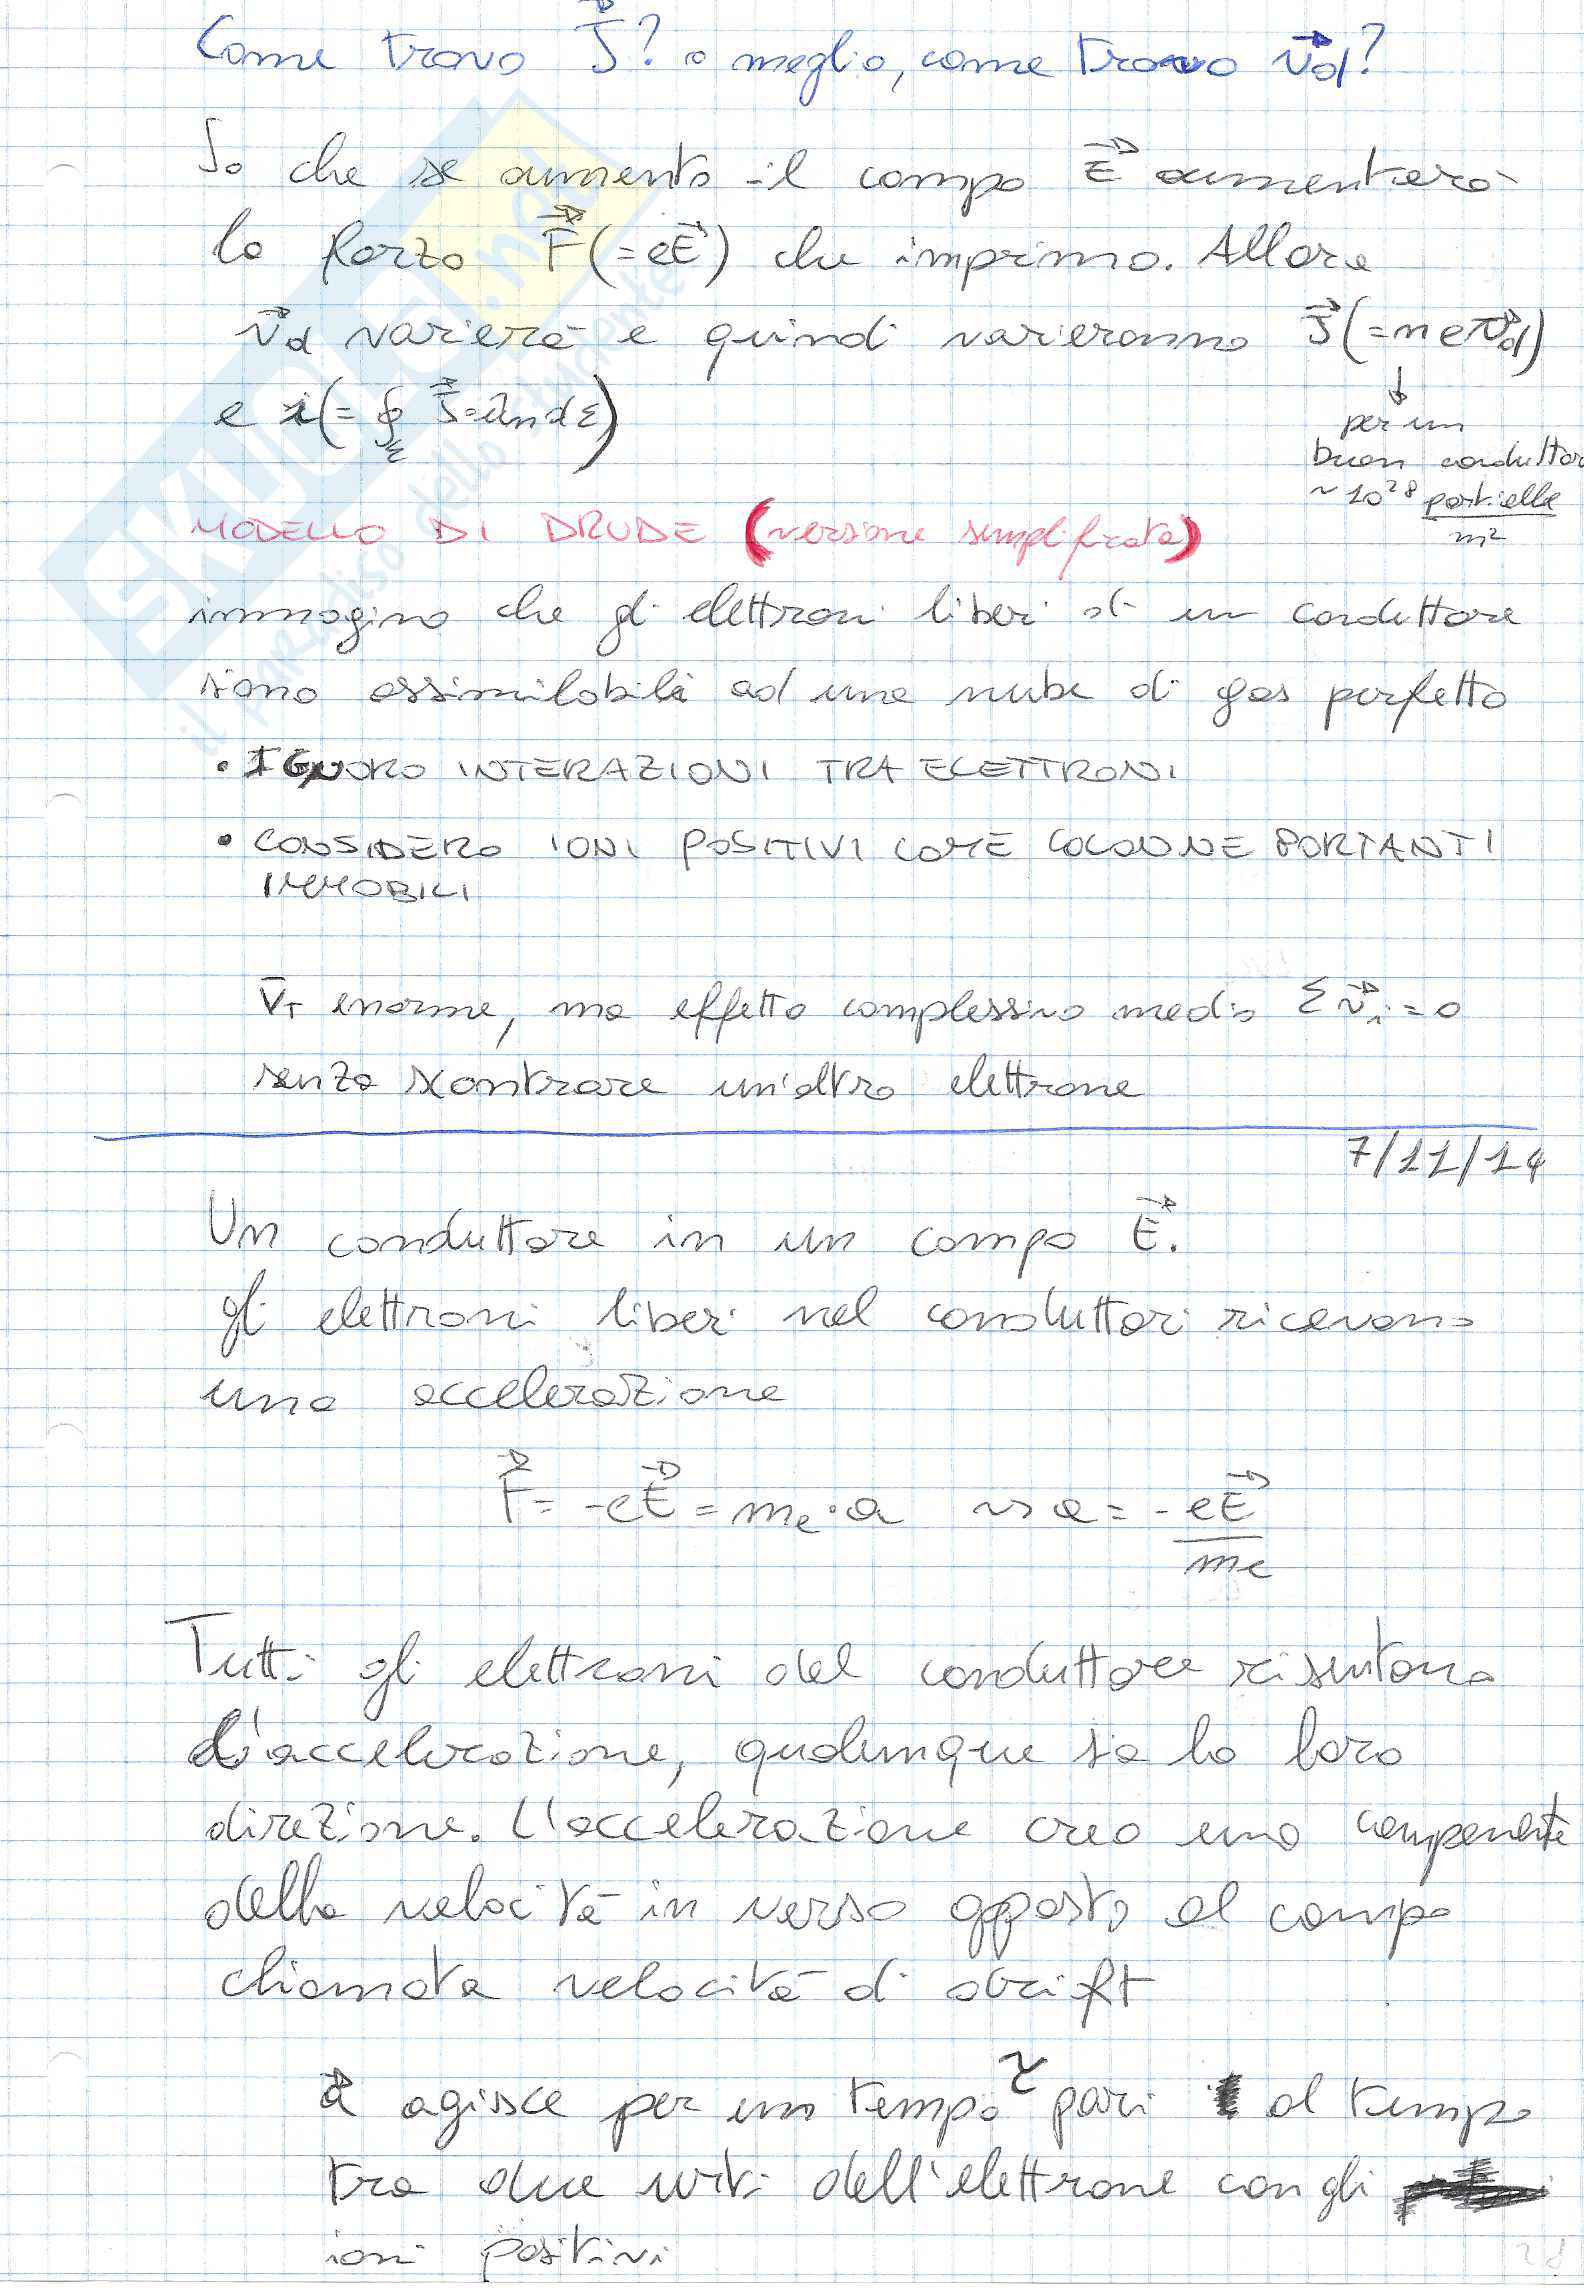 Come trovo J⃗? o meglio, come trovo v⃗d?
So che se aumento il campo E⃗ aumenterà
la forza F⃗(=eE⃗) che imprimo. Allora
v⃗d varierà e quindi varieranno J⃗(=nev⃗d)
e i(=∮Σ J⃗=ûndΣ)
↓
per un
buon conduttor
~10²⁸ particelle
m²
MODELLO DI DRUDE (versione semplificata)
immagino che gli elettroni liberi di un conduttore
siano assimilabili ad una nube di gas perfetto
• IGNORO INTERAZIONI TRA ELETTRONI
• CONSIDERO IONI POSITIVI COME COLONNE PORTANTI
IMMOBILI
v̄T enorme, ma effetto complessivo medio Σv⃗i=0
senza scontrare un'altro elettrone
7/11/14
Un conduttore in un campo E⃗.
gli elettroni liberi nel conduttori ricevono
una accelerazione
F⃗=-eE⃗=me·a ⇝ a=-eE⃗
me
Tutti gli elettroni del conduttore risentono
d'accelerazione, qualunque sia la loro
direzione. L'accelerazione crea una componente
della velocità in verso opposto al campo
chiamata velocità di drift
a⃗ agisce per un tempo τ pari al tempo
tra due urti dell'elettrone con gli
ioni positivi
28
SKUOLA.net
il paradiso dello studente